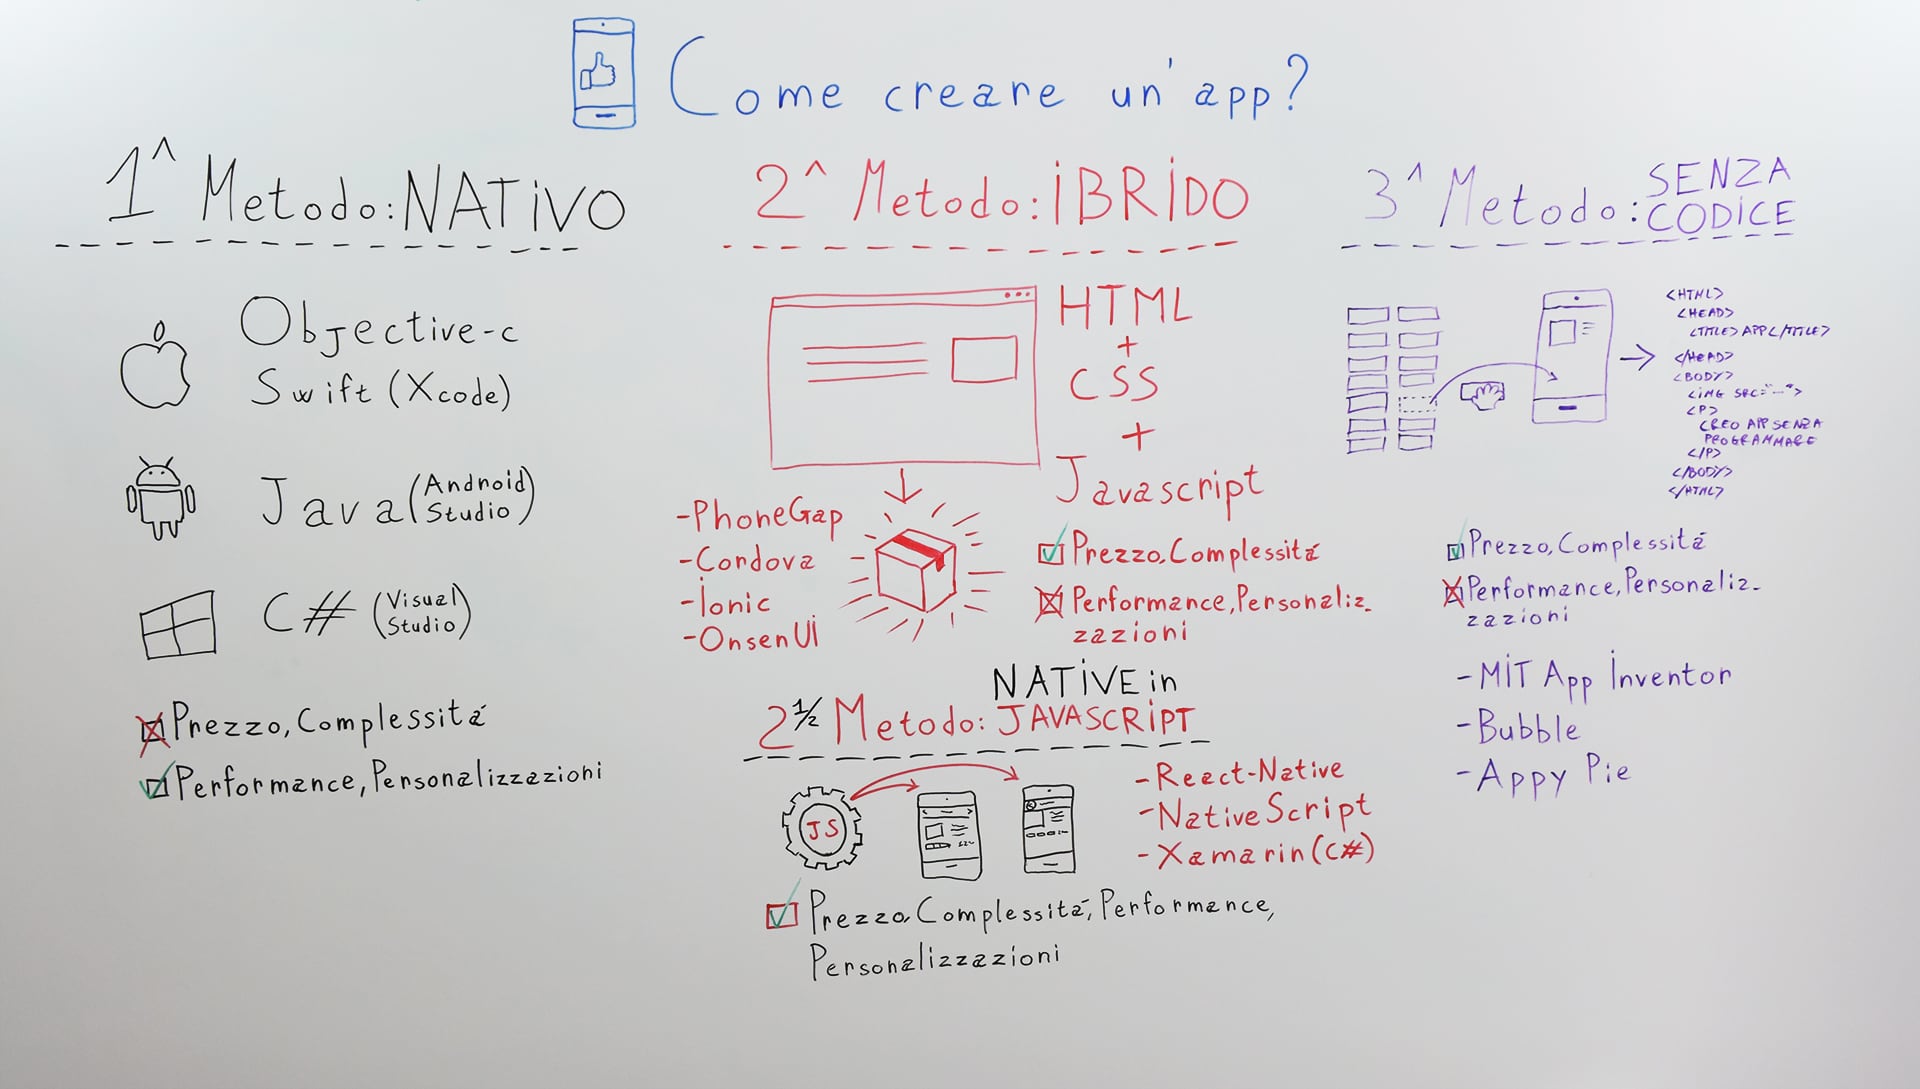 Come creare un'app?
1^ Metodo: NATIVO
Objective-c
Swift (Xcode)
Java (Android Studio)
C# (Visual Studio)
Prezzo, Complessitá
Performance, Personalizzazioni
2^ Metodo: IBRIDO
HTML
+
CSS
+
Javascript
-PhoneGap
-Cordova
-Ionic
-OnsenUI
Prezzo, Complessitá
Performance, Personaliz-
zazioni
2 1/2 Metodo: NATIVE in JAVASCRIPT
JS
-React-Native
-NativeScript
-Xamarin (C#)
Prezzo, Complessitá, Performance,
Personalizzazioni
3^ Metodo: SENZA CODICE
<HTML>
<HEAD>
<TITLE> APP </TITLE>
</HEAD>
<BODY>
<IMG SRC="...">
<P>
CREO APP SENZA
PROGRAMMARE
</P>
</BODY>
</HTML>
Prezzo, Complessitá
Performance, Personaliz-
zazioni
-MIT App Inventor
-Bubble
-Appy Pie